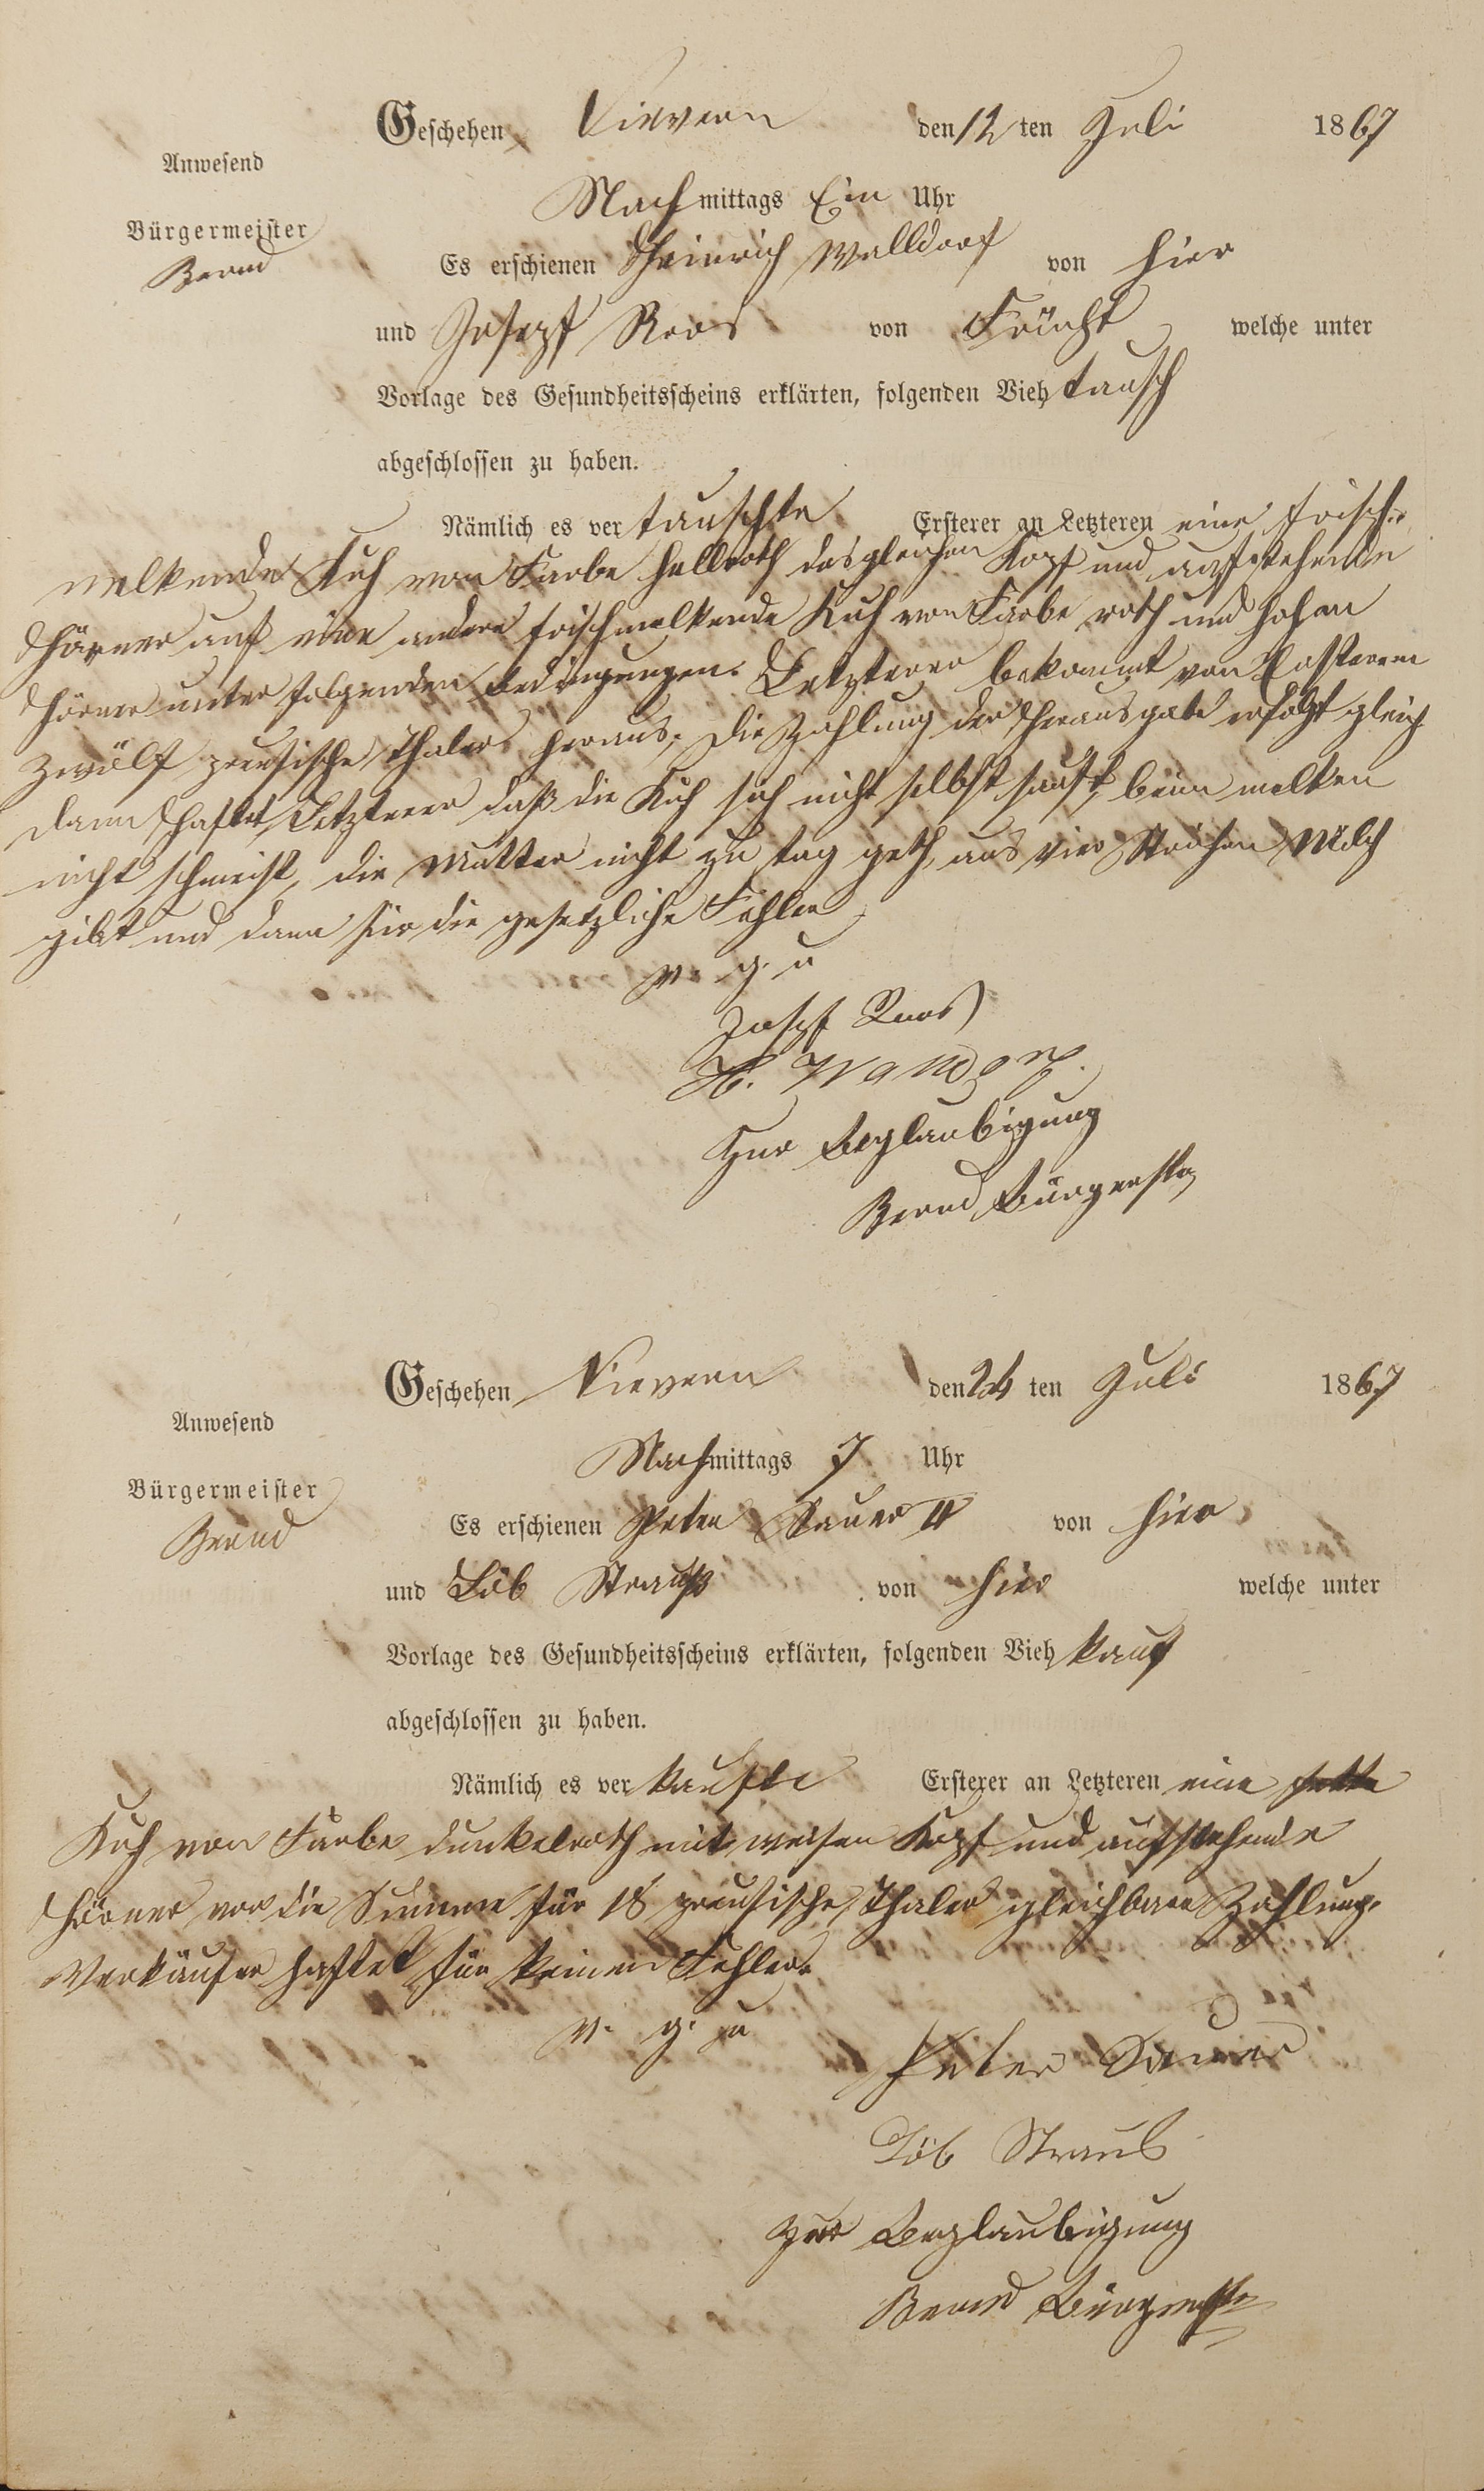 Geschehen Nievern den 12 ten Juli 1867
Anwesend
Nachmittags Ein Uhr
Bürgermeister
Bernd
Es erschienen Heinrich Walldorf von hier
und Josepf Roos von Frücht welche unter
Vorlage des Gesundheitsscheins erklärten, folgenden Viehtausch
abgeschlossen zu haben.
Nämlich es vertauschte Ersterer an Letzteren eine frisch-
melkende Kuh von Farbe hellroth desgleichen Kopf und aufstehende
Hörner auf eine andere frischmelkende Kuh von Farbe roth und hohen
Hörner unter folgenden Bedingungen. Letzterer bekommt von Ersterem
zwölf preusische Thaler heraus, die Zahlung der Herausgabe erfolgt gleich
dann haftet Letzterer daß die Kuh sich nicht selbst sauft, beim melken
nicht schmeist, die Mutter nicht zu tag geth, aus vier Strichen Milch
gibt und dann für die gesetzliche Fehler
v. g. u
Josepf Roos
H.
Zur Beglaubigung
Bernd Bürgerstr
Geschehen Nievern den 24 ten Juli 1867
Anwesend
Nachmittags 7 Uhr
Bürgermeister
Bernd
Es erschienen Peter Sauer II von hier
und Löb Strauß von hier welche unter
Vorlage des Gesundheitsscheins erklärten, folgenden Viehkauf
abgeschlossen zu haben.
Nämlich es verkaufte Ersterer an Letzteren eine fette
Kuh von Farbe dunkelroth mit weisen Kopf und aufstehende
Hörner vor die Summe für 18 preusische Thaler gleichbare Zahlung.
Verkäufer haftet für keinen Fehler.
v. g. u
Peter Sauer
Löb Straus
Zur Beglaubigung
Bernd Bürgerstr